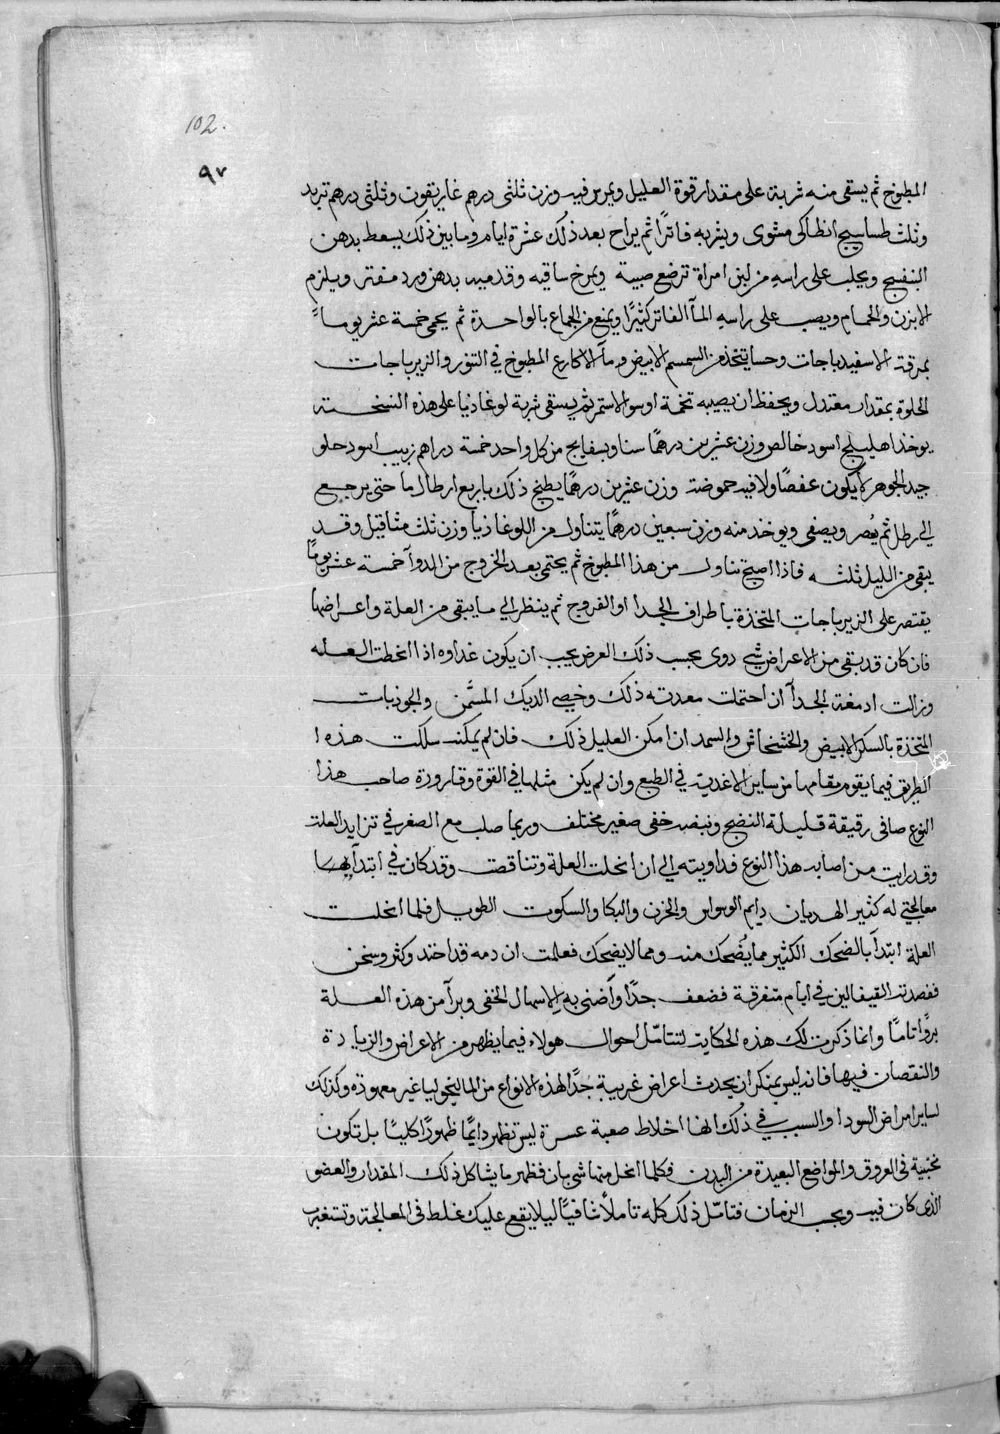 102.
٩٧
المطبوخ ثم يسقى منه شربة على مقدار قوة العليل ويمرس فيه وزن ثلثى درهم غاريقون وثلثى درهم تربد
وثلث طساسيج انطاكى مشوى ويشربه فاترًا ثم يراح بعد ذلك عشرة ايام وما بين ذلك يسعط بدهن
البنفسج ويحلب على راسه من لبن امراة ترضع صبية ويمرخ ساقيه وقدميه بدهن ورد مفتر ويلزم
الابزن والحمام ويصب على راسه المآ الفاتر كثيرًا ويمنع من الجماع بالواحدة ثم يحمى خمسة عشر يوماً
بمرقة الاسفيدباجات وحسا يتخذ من السمسم الابيض ومآ الاكارع المطبوخ فى التنور والزيرباجات
الحلوة بمقدار معتدل ويحفظ ان يصيبه تخمة او سو الاستمرا ثم يسقى شربة لوغاذيا على هذه النسخة
يوخذ اهليلج اسود خالص وزن عشرين درهمًا سنا وبسفايج من كل واحد خمسة دراهم زبيب اسود حلو
جيد الجوهر لا يكون عفصًا ولا فيه حموضة وزن عشرين درهمًا يطبخ ذلك باربع ارطال ما حتى يرجع
الى رطل ثم يُصر ويصفى ويوخذ منه وزن سبعين درهمًا يتناول من اللوغاذيا وزن ثلث مثاقيل وقد
يبقى من الليل ثلثه فاذا اصبح تناول من هذا المطبوخ ثم يحتمى بعد الخروج من الدوآ خمسة عشر يومًا
يقتصر على الزيرباجات المتخذة باطراف الجدا او الفروج ثم ينظر الى ما يبقى من العلة واعراضها
فان كان قد بقى من الاعراض شى دوى بحسب ذلك العرض يجب ان يكون غذاوه اذا انحطت العله
وزالت ادمغة الجدآ ان احتملت معدته ذلك وخصى الديك المسمَّن والجوذبات
المتخذة بالسكر الابيض والخشخاش والسمد ان امكن العليل ذلك فان لم يمكنه سلكت هذه ا
الطريق فيما يقوم مقامها من ساير الاغذية فى الطبع وان لم يكن مثلها فى القوة وقارورة صاحب هذا
النوع صافى رقيقة قليلة النضج ونبضه خفى صغير مختلف وربما صلب مع الصغر فى تزايد العلة
وقد رايت من اصابه هذا النوع فداويته الى ان انحلت العلة وتناقصت وقد كان فى ابتدآ
معالجتى له كثير الهديان دايم الوسواس والحزن والبكا والسكوت الطويل فلما انحلت
العلة ابتدآ بالضحك الكثير مما يُضحك منه ومما لا يضحك فعلمت ان دمه قد احتد وكثر وسخن
ففصدته القيفالين فى ايام متفرقة فضعف جدًا واضنى به الاسهال الخفى وبرآ من هذه العلة
بروًا تامًا وانما ذكرت لك هذه الحكاية لتتامّل احوال هولاء فيما يظهر من الاعراض والزيادة
والنقصان فيها فانه ليس بمنكر ان يحدث اعراض غريبة جدًا لهذه الانواع من الماليخوليا غير معهودة وكذلك
لساير امراض السودا والسبب فى ذلك انها اخلاط صعبة عسرة ليس تظهر دايمًا ظهورًا كليًا بل تكون
مختبية فى العروق والمواضع البعيدة من البدن فكلما انحل منها شى بان فظهر ما يشاكل ذلك المقدار والعضو
الذى كان فيه وبحسب الزمان فتامّل ذلك كله تاملاً شافيًا ليلا يقع عليك غلط فى المعالجة وتستغرب